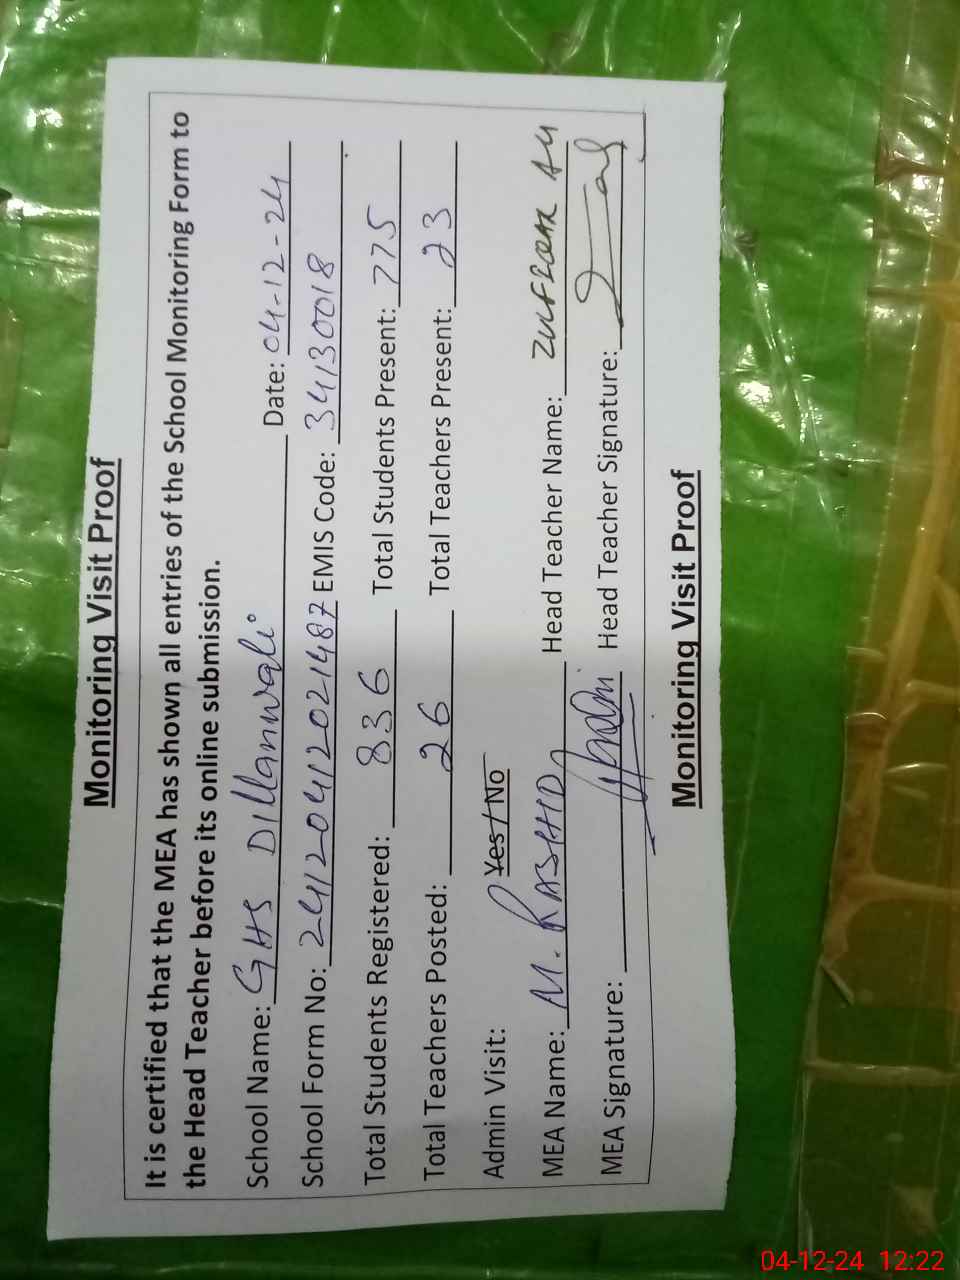 Monitoring Visit Proof
It is certified that the MEA has shown all entries of the School Monitoring Form to
the Head Teacher before its online submission.
School Name: GHS Dillanwali Date: 04-12-24
School Form No: 24120412021487 EMIS Code: 34130018
Total Students Registered: 836 Total Students Present: 775
Total Teachers Posted: 26 Total Teachers Present: 23
Admin Visit: Yes / No
MEA Name: M. RASHID Head Teacher Name: ZULFIQAR Ali
MEA Signature: Head Teacher Signature:
Monitoring Visit Proof
04-12-24 12:22